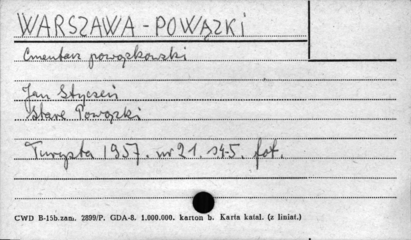 WARSZAWA - POWĄZKI
Cmentarz powązkowski
Jan Styczeń
Stare Powązki
Turysta 1957. nr 21. s 4-5. fot.
CWD B-15b.zam. 2899/P. GDA-8. 1.000.000. karton b. Karta katal. (z liniat.)